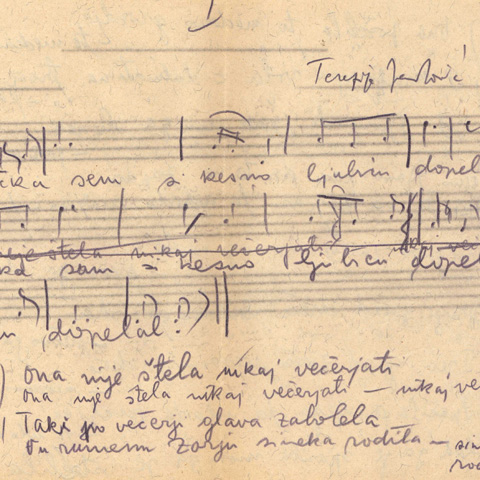 I
čka sem s kesno ljubin dopel
ije štela nikaj večerjati
sam s kesno ljubin dopel
dopelal?
ona nije štela nikaj večerjati
ona nije štela nikaj večerjati — nikaj ve
Taki po večerji glava zabolela
rumenu zorju sineka rodila — sin
ro